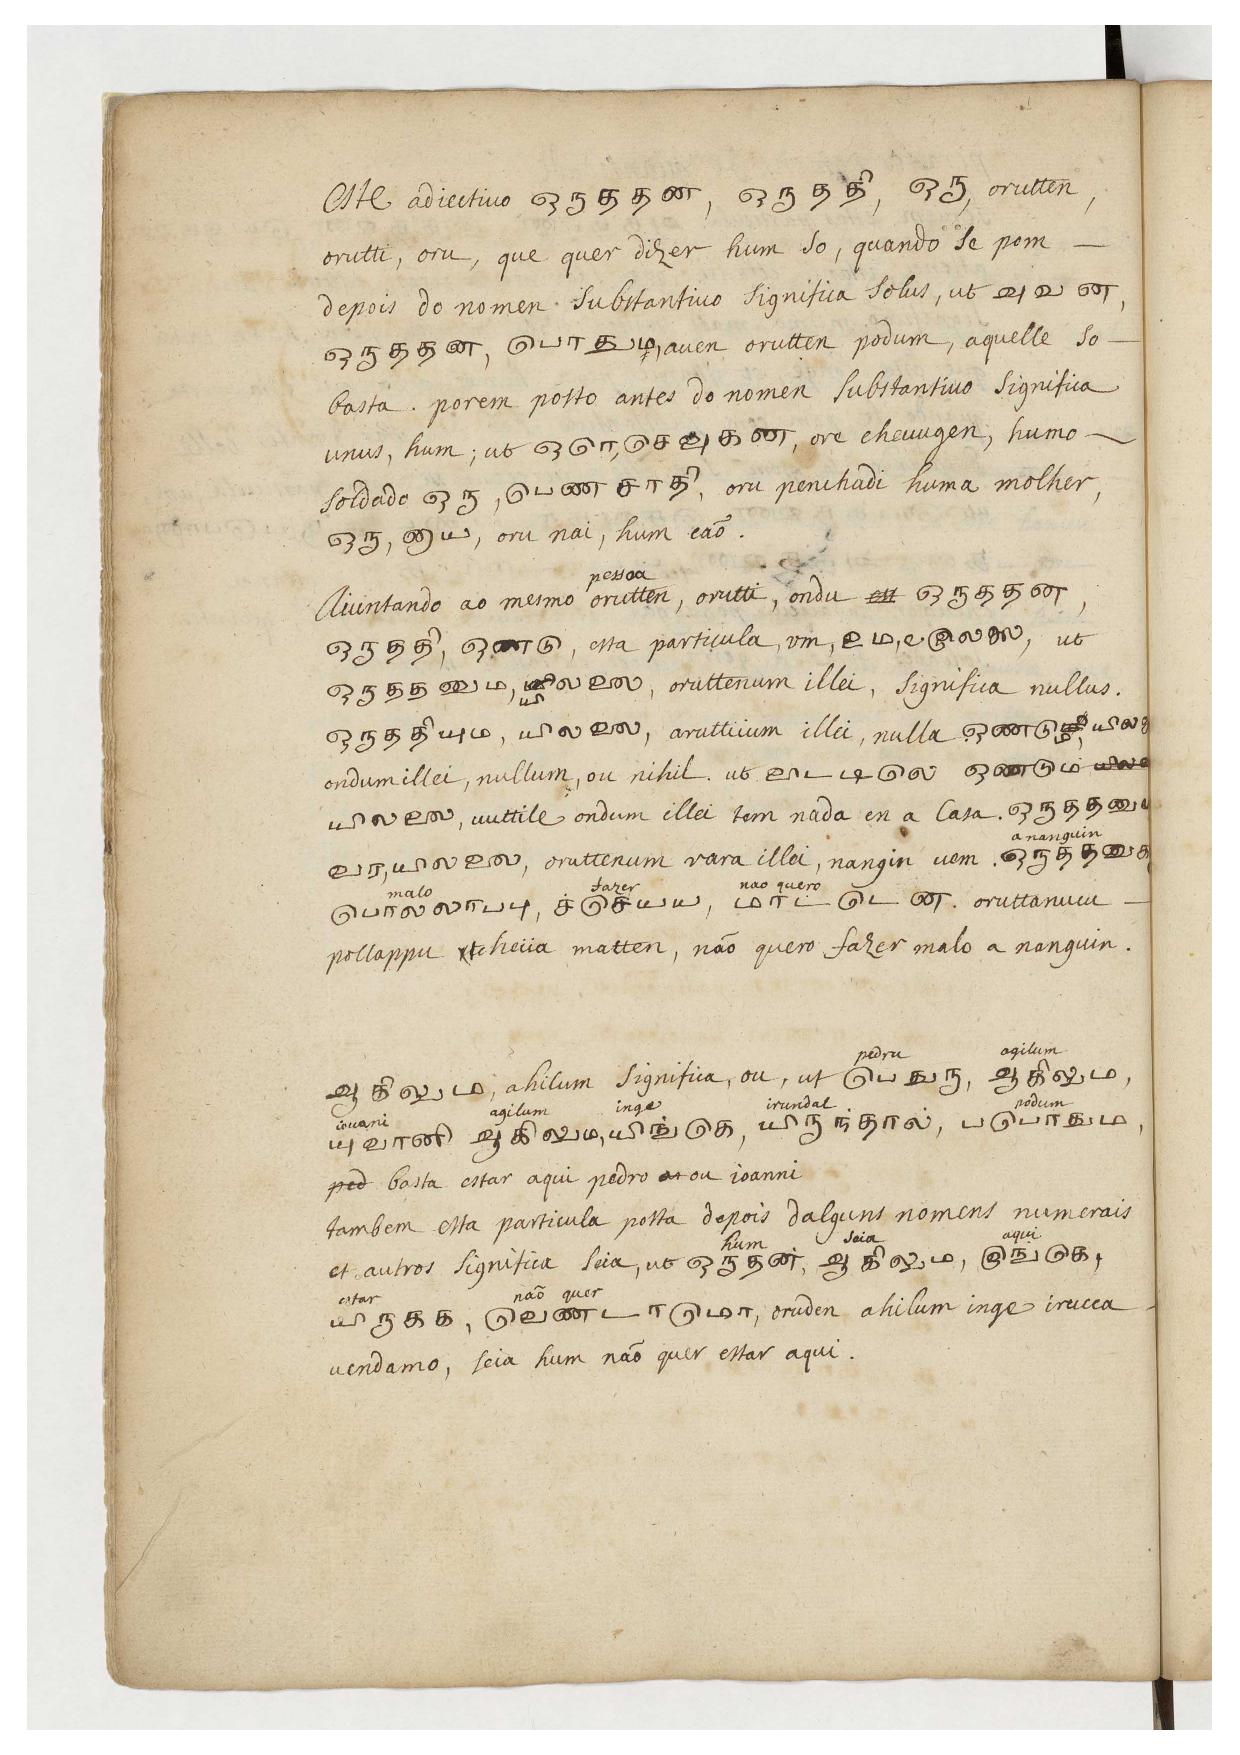 Este adiectiuo ஒருததன, ஒருததி, ஒரு, orutten,
orutti, oru, que quer dizer hum so, quando se pom —
depois do nomen substantiuo significa solus, ut அவன,
ஒருததன, பொதும, auen orutten podum, aquelle so —
basta. porem posto antes do nomen substantiuo significa
unus, hum; ut ஒரெ, செவுகன, ore cheuugen, humo —
soldado ஒரு, பெணசாதி, oru penchadi huma molher,
ஒரு, னாய, oru nai, hum caõ.
pessoa
Aiuntando ao mesmo orutten, orutti, ondu est ஒருததன,
ஒருததி, ஒண்டு, esta particula, vm, உம, ut
ஒருததனும, யிலலை, oruttenum illei, significa nullus.
ஒருததியும, யிலலை, aruttiium illei, nulla ஒணடும,
ondum illei, nullum, ou nihil. ut ஊட்டிலெ ஒணடும
யிலலை, uuttile ondum illei tem nada en a Casa. ஒருததனும
வர, யிலலை, oruttenum vara illei, nangin uem.
a nanguin
malo fazer nao quero
பொல்லாபபு, செய்ய, மாட்டென. oruttanucu —
pollappu cheiia matten, não quero fazer malo a nanguin.
pedru agilum
ஆகிலும, ahilum significa, ou, ut பெதுரு, ஆகிலும,
iouani agilum inge irundal podum
யுவானி ஆகிலும, யிங்கெ, யிருந்தால், பபொதும,
ped basta estar aqui pedro ou ioanni
tambem esta particula posta depois dalguns nomens numerais
hum seia aqui
et autros significa seia, ut ஒருதன், ஆகிலும, இங்கெ,
estar não quer
யிருகக, வெண்டாமொ, oruden ahilum inge irucca
uendamo, seia hum não quer estar aqui.